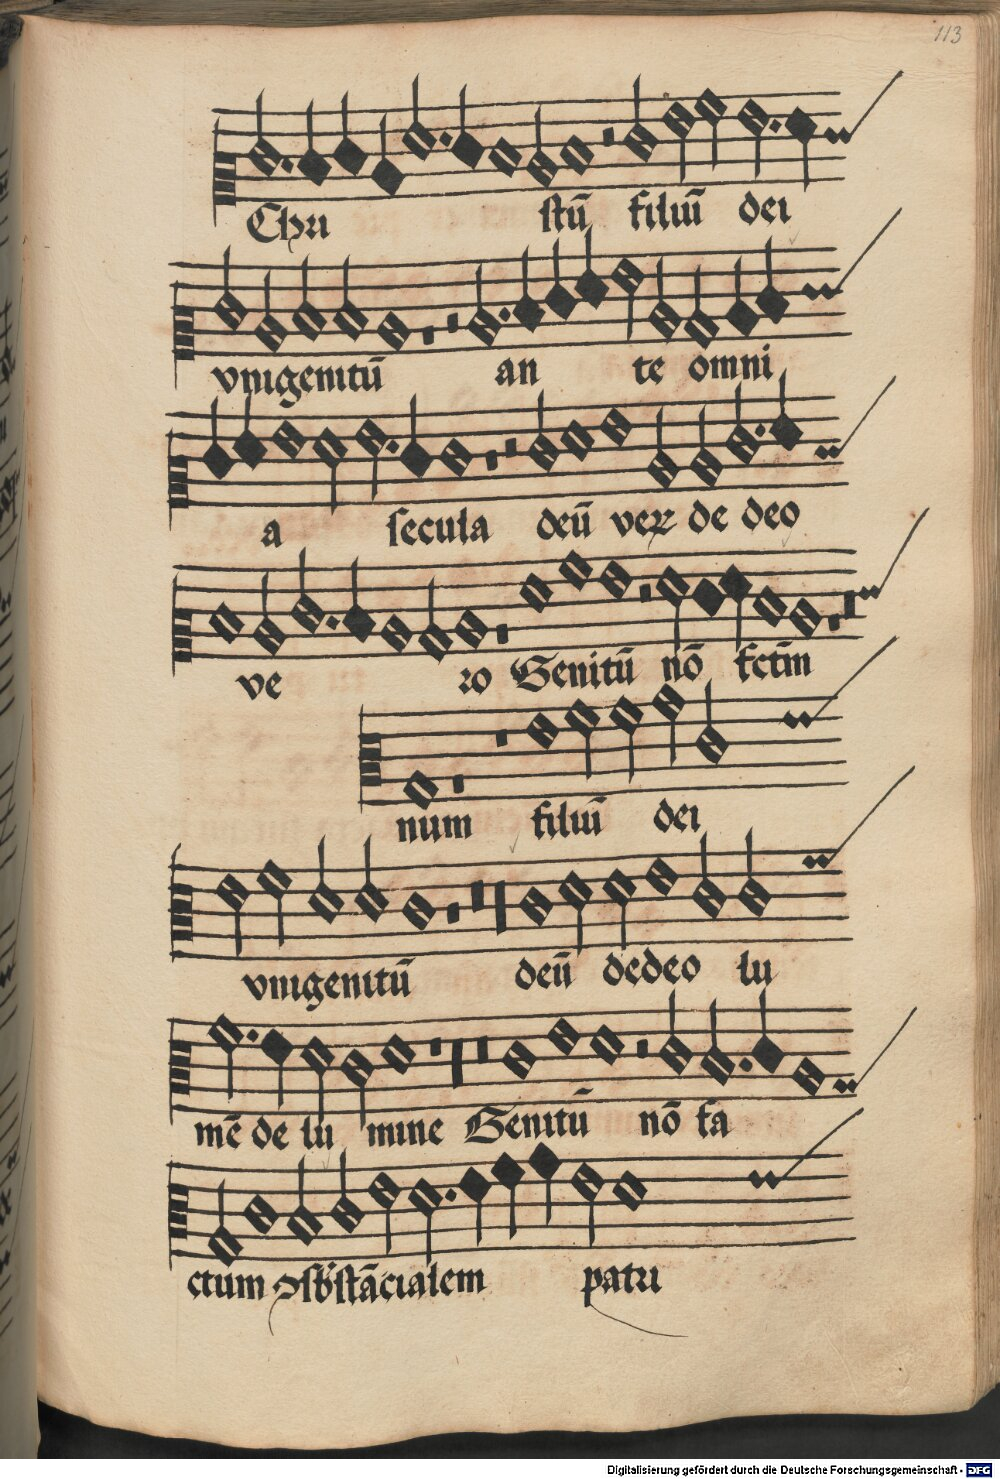 113
Chri stū filiū dei
vnigenitū an te omni
a secula deū veꝝ de deo
ve ro Genitū nō fctm̄
num filiū dei
vnigenitū deū dedeo lu
mē de lu mine Genitū nō fa
ctum ꝯsbstācialem patri
Digitalisierung gefördert durch die Deutsche Forschungsgemeinschaft - DFG